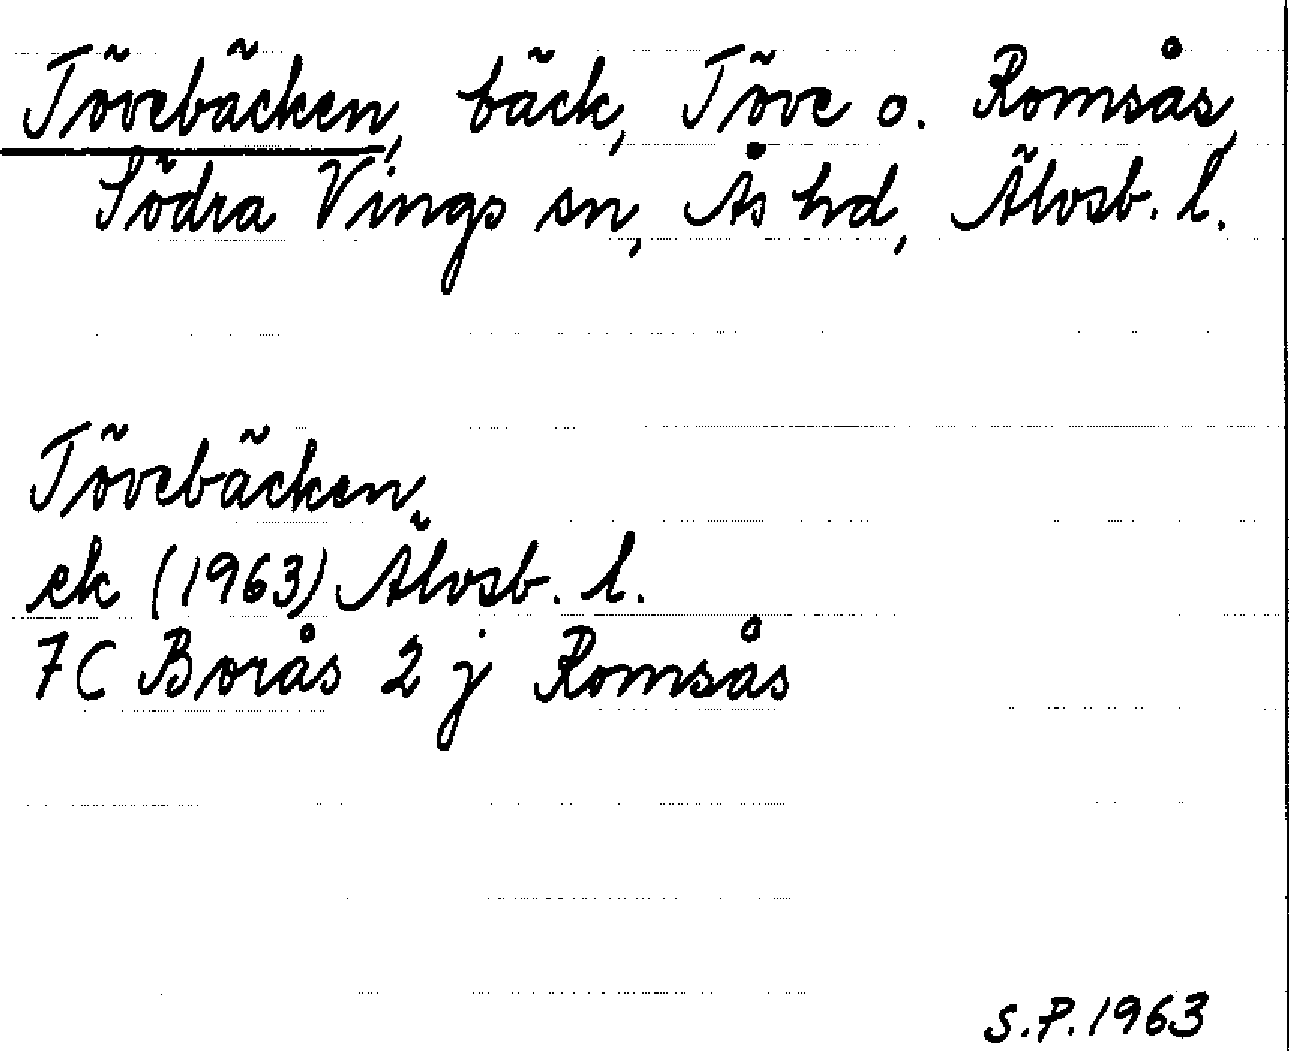 Tövebäcken, bäck, Töve o. Romsås,
Södra Vings sn, Ås hd, Älvsb. l.
Tövebäcken
ek (1963) Älvsb. l.
7C Borås 2 j Romsås
S.P. 1963